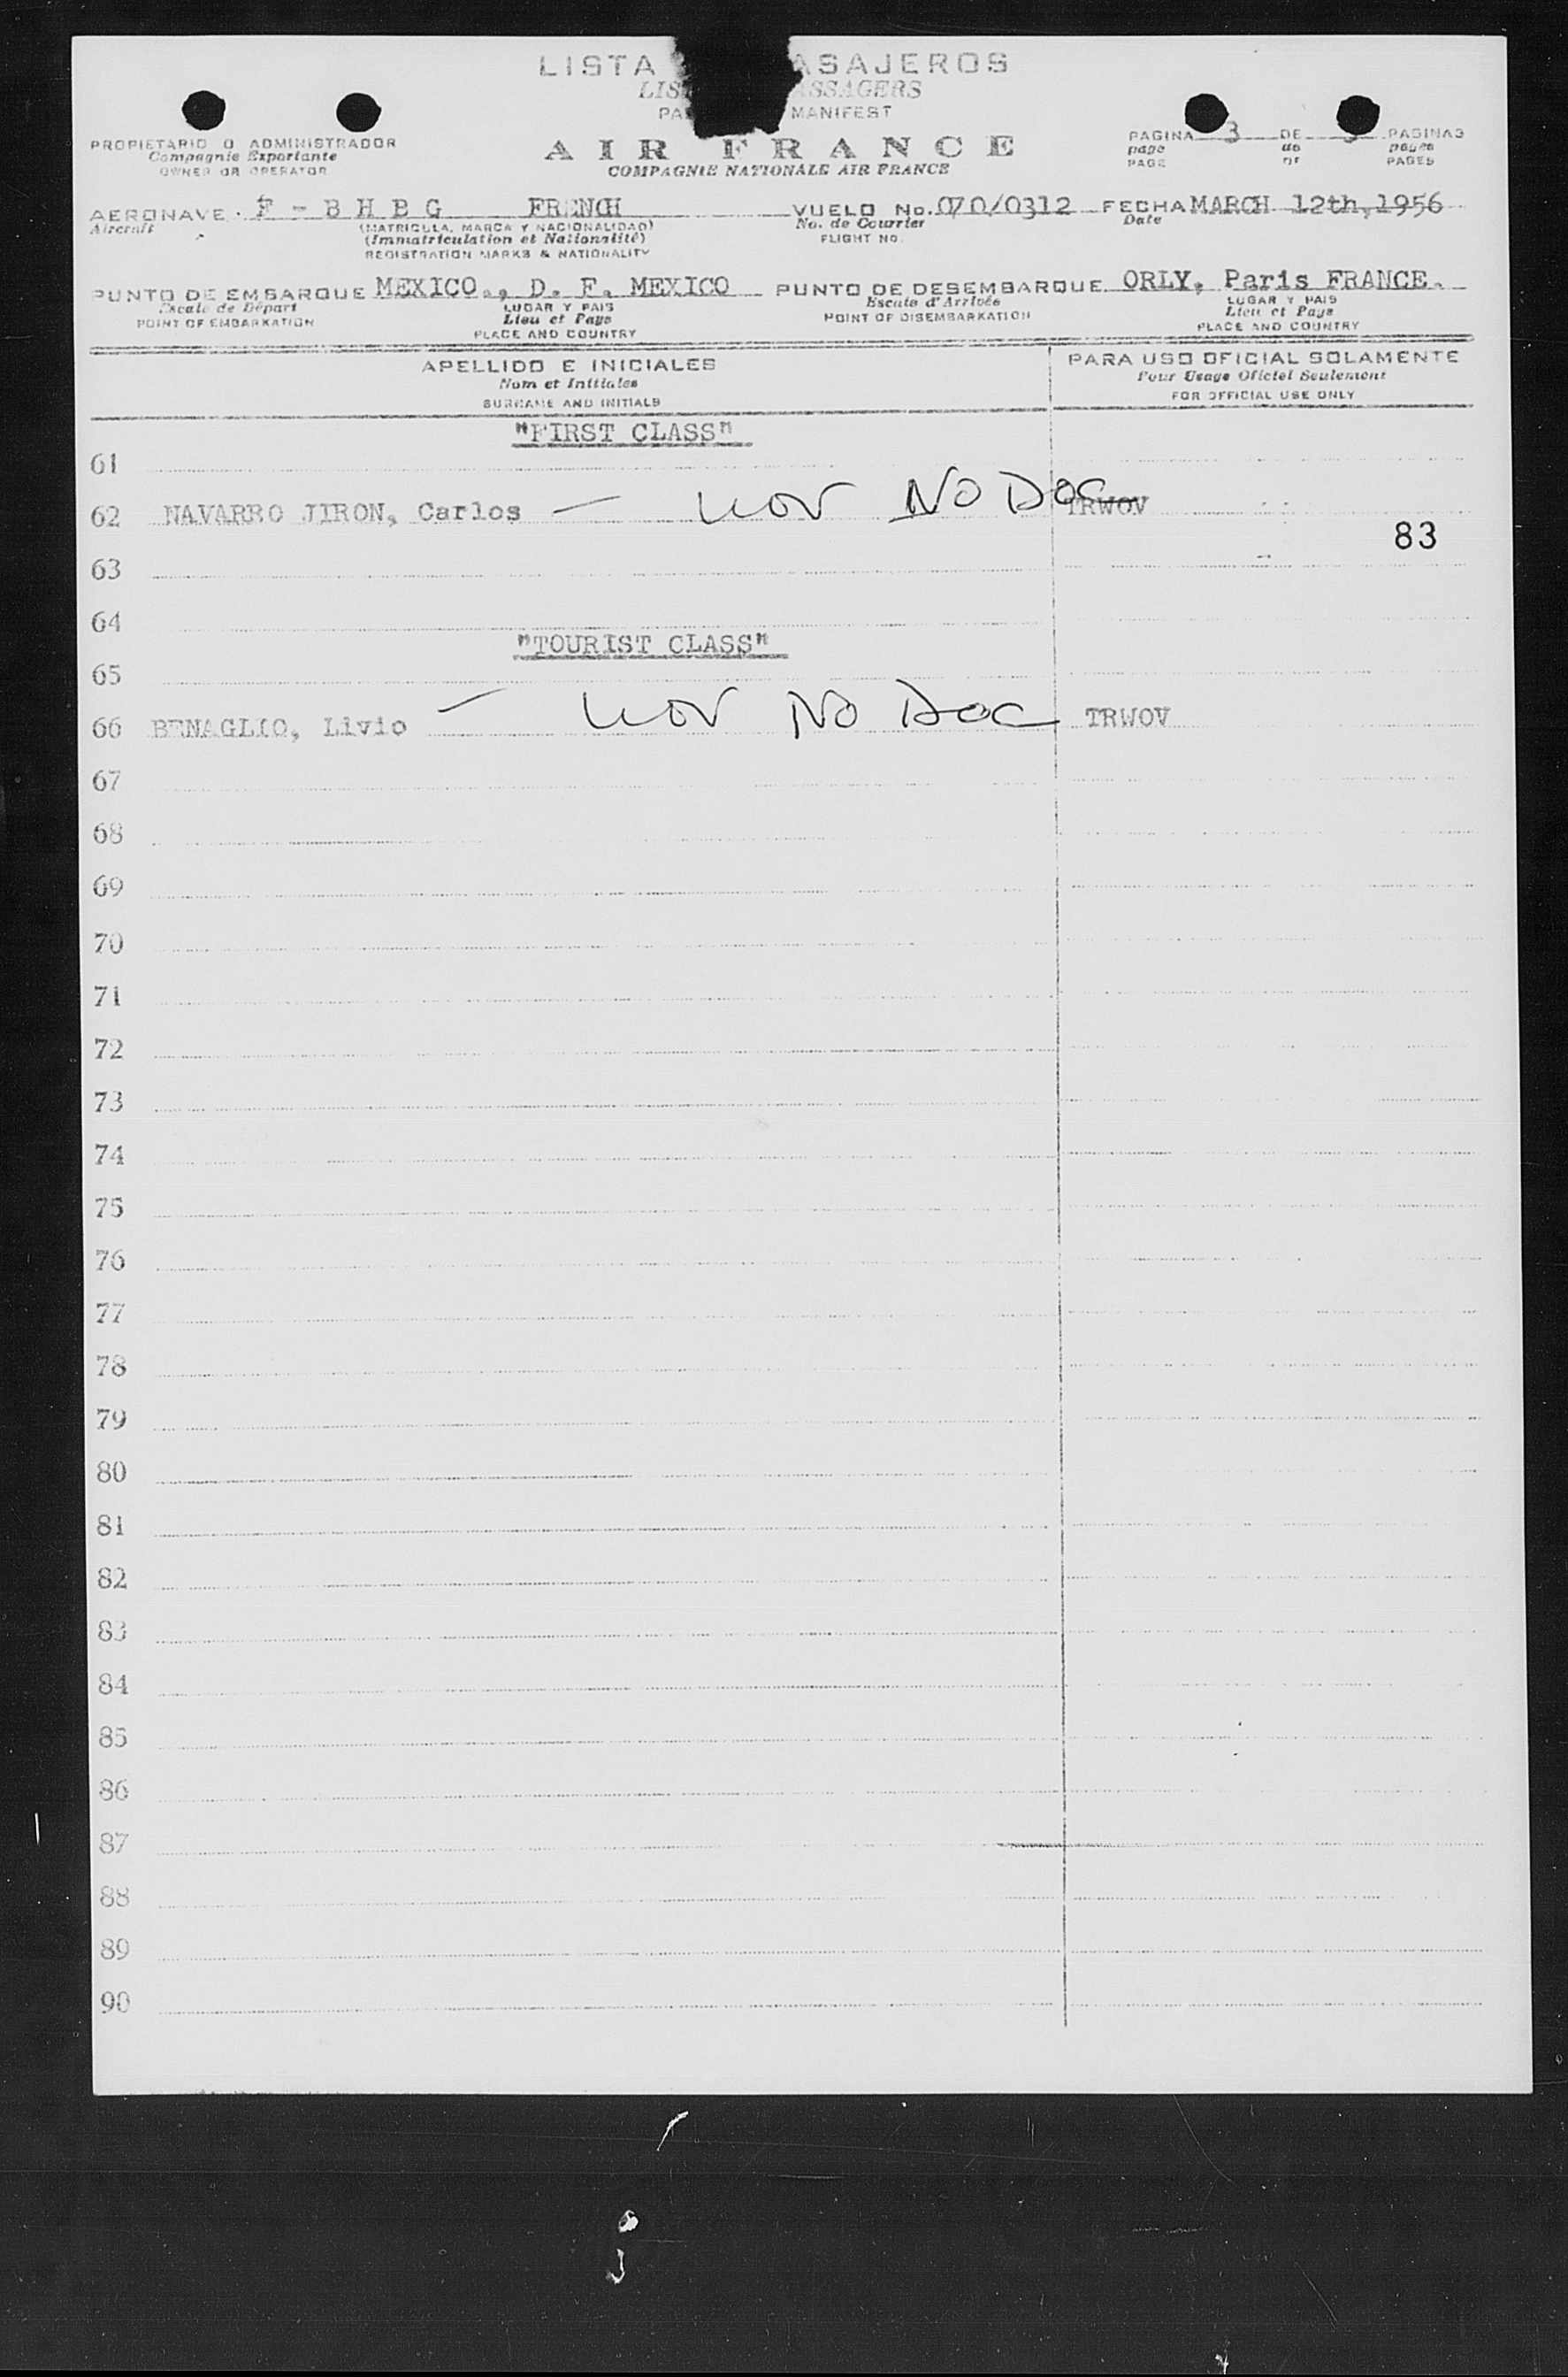 LISTA PASAJEROS
LIS SSAGERS
PA MANIFEST
PROPIETARIO O ADMINISTRADOR
Compagnie Exportante
OWNER OR OPERATOR
AIR FRANCE
COMPAGNIE NATIONALE AIR FRANCE
PAGINA 3 DE 3 PAGINAS
page de pages
PAGE OF PAGES
AERONAVE F - B H B G FRENCH VUELO No. 070/0312 FECHA MARCH 12th, 1956
Aircraft (MATRICULA, MARCA Y NACIONALIDAD) No. de Courrier Date
(Immatriculation et Nationalité) FLIGHT NO.
REGISTRATION MARKS & NATIONALITY
PUNTO DE EMBARQUE MEXICO., D. F. MEXICO PUNTO DE DESEMBARQUE ORLY, Paris FRANCE.
Escale de Départ LUGAR Y PAIS Escale d'Arrivée LUGAR Y PAIS
POINT OF EMBARKATION Lieu et Pays POINT OF DISEMBARKATION Lieu et Pays
PLACE AND COUNTRY PLACE AND COUNTRY
APELLIDO E INICIALES PARA USO OFICIAL SOLAMENTE
Nom et Initiales Pour Usage Officiel Seulement
SURNAME AND INITIALS FOR OFFICIAL USE ONLY
"FIRST CLASS"
61
62 NAVARRO JIRON, Carlos — WOV NO DOC TRWOV
83
63
64
"TOURIST CLASS"
65
66 BENAGLIO, Livio — WOV NO DOC TRWOV
67
68
69
70
71
72
73
74
75
76
77
78
79
80
81
82
83
84
85
86
87
88
89
90